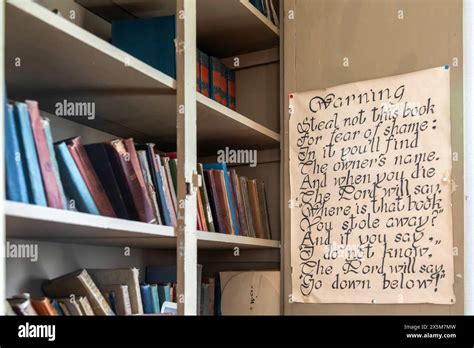 Warning
Steal not this book
for fear of shame:
In it you'll find
The owner's name.
And when you die
The Lord will say,
Where is that book
You stole away?
And if you say,
I do not know,
The Lord will say
Go down below!
alamy
Image ID: 2X5M7MW
www.alamy.com